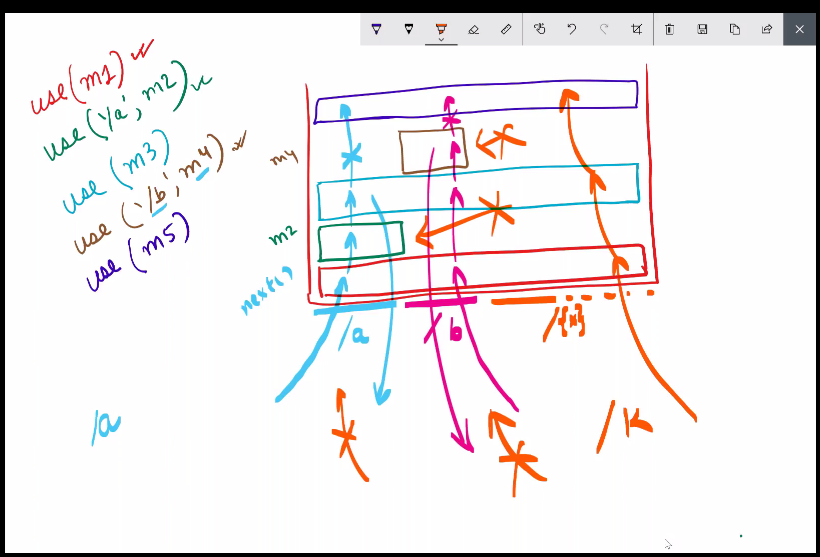 use(m1)
use('/a', m2)
use(m3)
use('/b', m4)
use(m5)
m4
m2
next()
/a
/b
/{x}
/a
/k